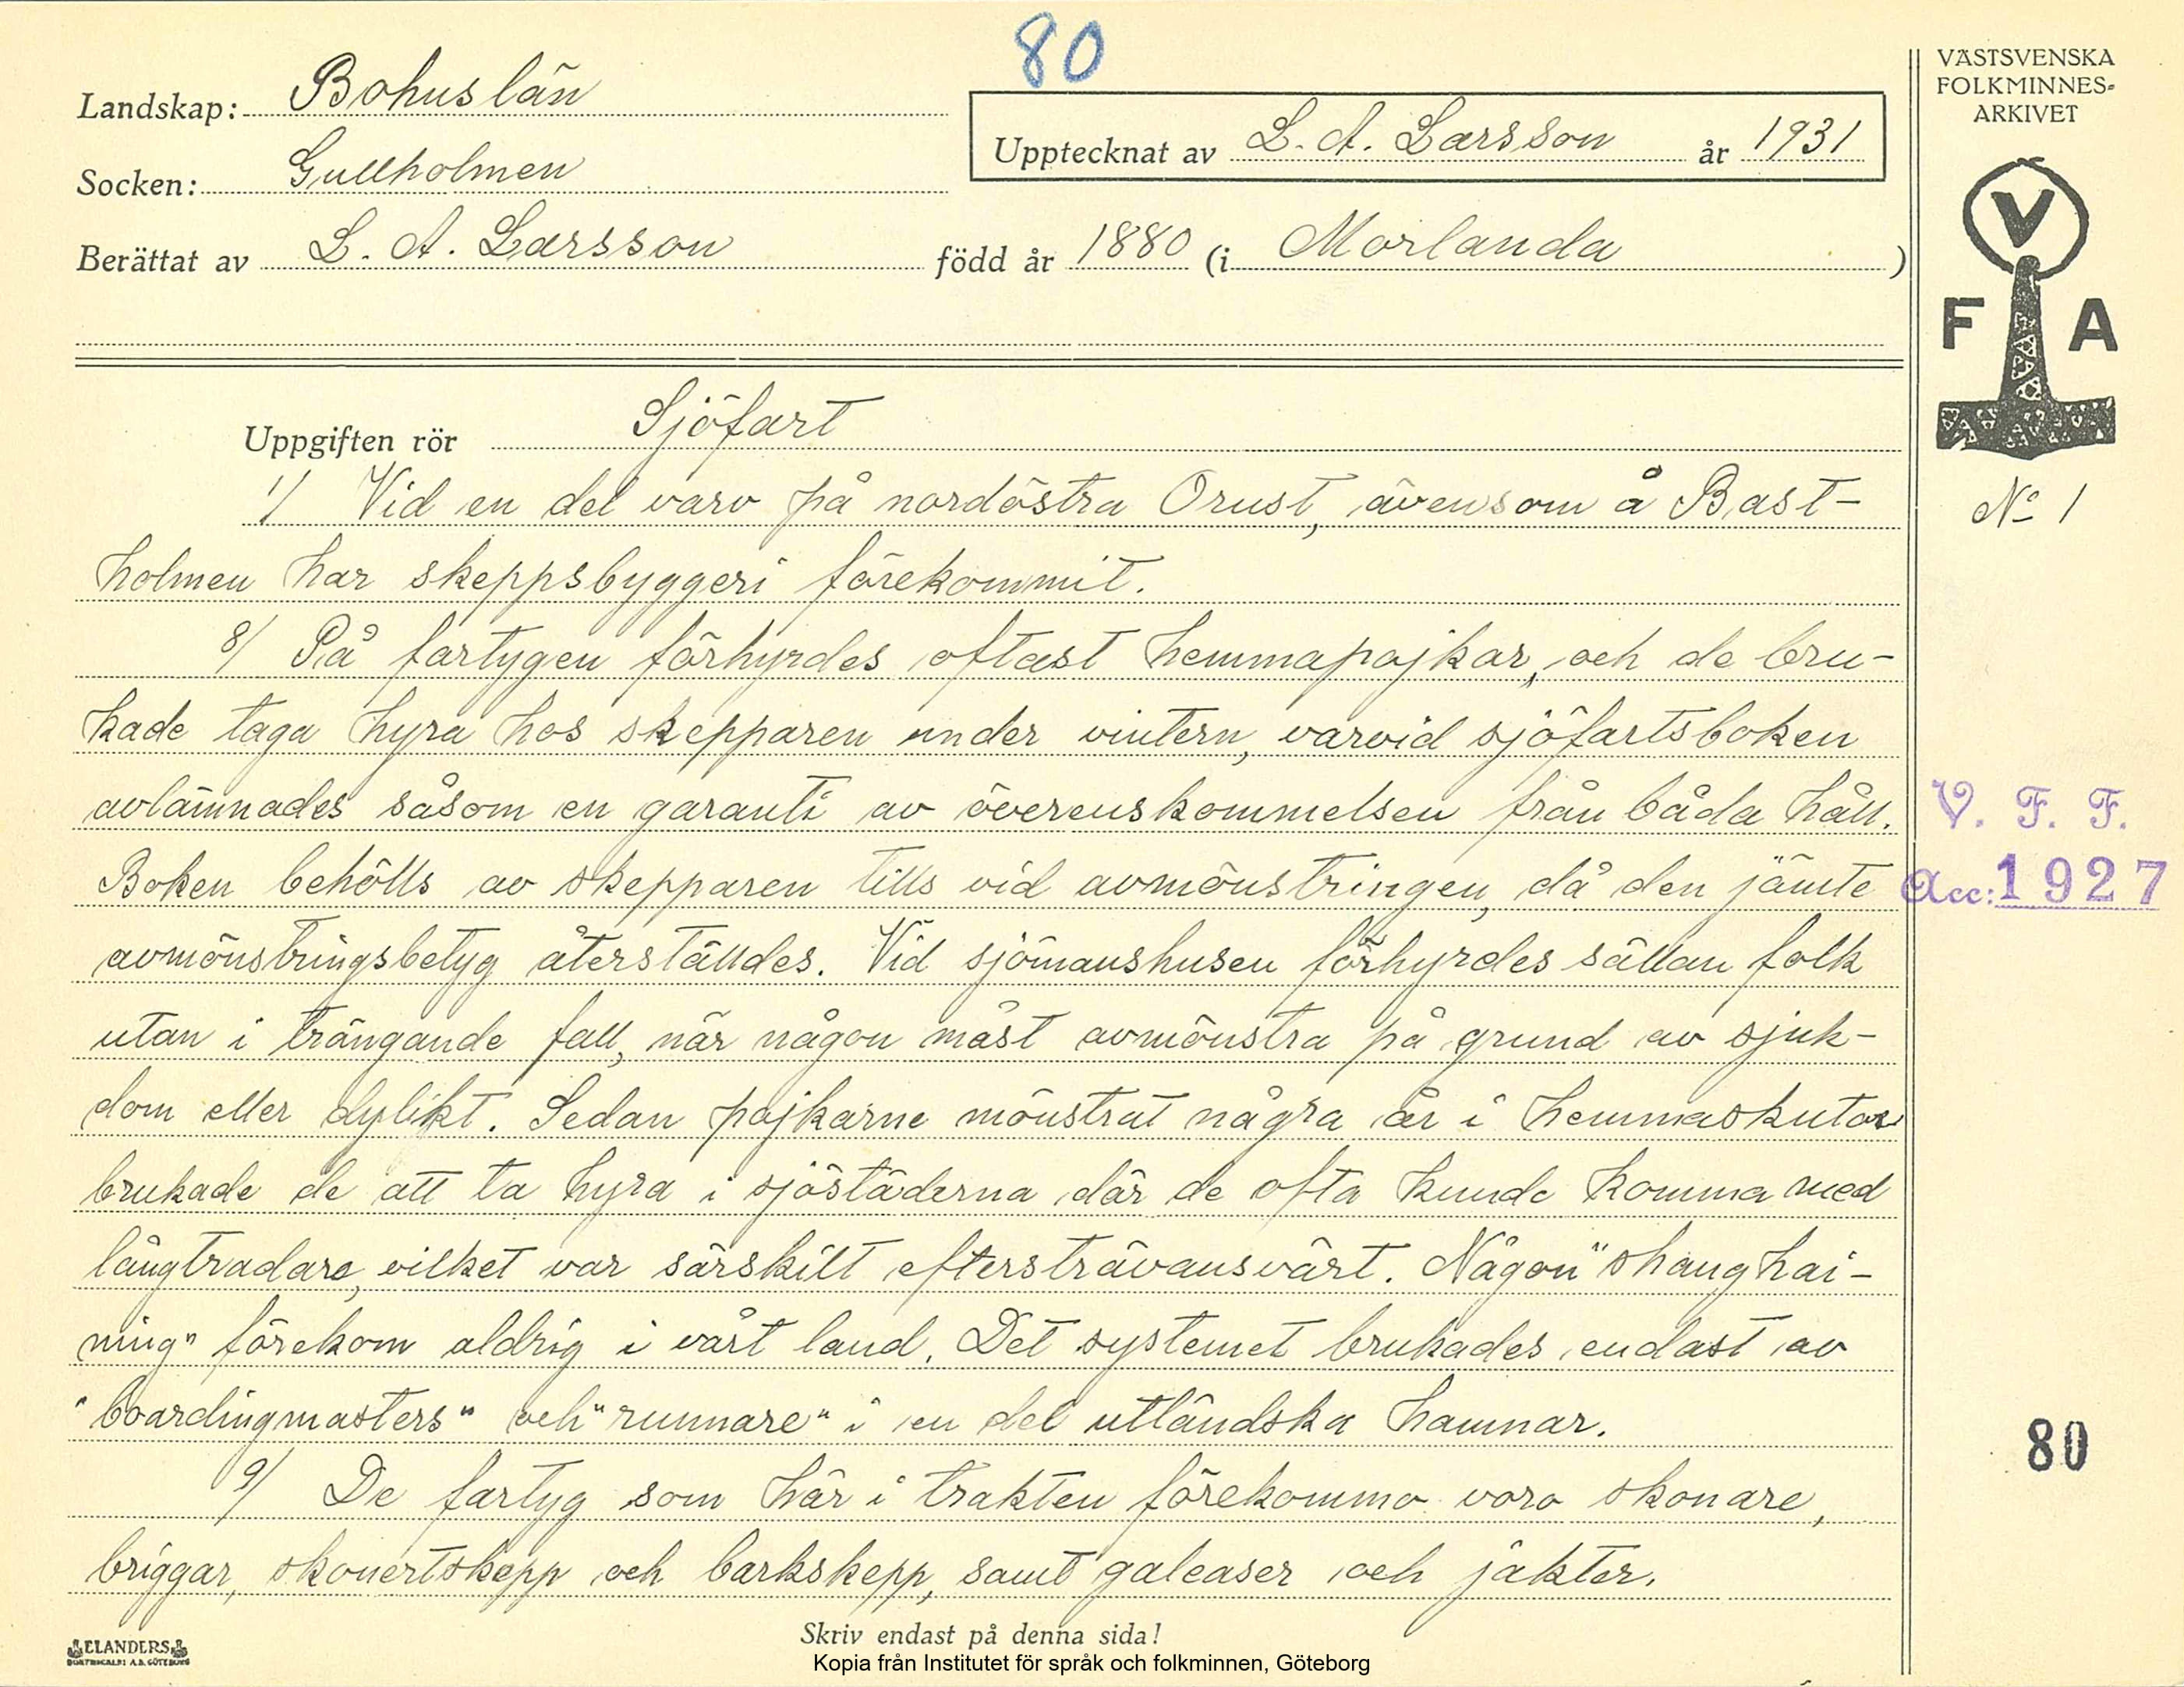 80
Landskap: Bohuslän
Upptecknat av L. A. Larsson år 1931
Socken: Gullholmen
Berättat av L. A. Larsson född år 1880 (i Morlanda)
VÄSTSVENSKA
FOLKMINNES-
ARKIVET
V
F A
Uppgiften rör Sjöfart
1/ Vid en del varv på nordöstra Orust, ävensom å Bast-
holmen har skeppsbyggeri förekommit.
8/ På fartygen förhyrdes oftast hemmapojkar, och de bru-
kade taga hyra hos skepparen under vintern, varvid sjöfartsboken
avlämnades såsom en garanti av överenskommelsen från båda håll.
Boken behölls av skepparen tills vid avmönstringen, då den jämte
avmönstringsbetyg återställdes. Vid sjömanshusen förhyrdes sällan folk
utan i trängande fall, när någon måst avmönstra på grund av sjuk-
dom eller dylikt. Sedan pojkarne mönstrat några år i hemmaskutor
brukade de att ta hyra i sjöstäderna där de ofta kunde komma med
långtradare, vilket var särskilt eftersträvansvärt. Någon "shanghai-
ning" förekom aldrig i vårt land. Det systemet brukades endast av
"boardingmasters" och "runnare" i en del utländska hamnar.
9/ De fartyg som här i trakten förekommo voro skonare,
briggar, skonertskepp och barkskepp, samt galeaser och jakter.
No 1
V. F. F.
Acc: 1927
80
Skriv endast på denna sida!
ELANDERS
BOKTRYCKERI A.B. GÖTEBORG
Kopia från Institutet för språk och folkminnen, Göteborg